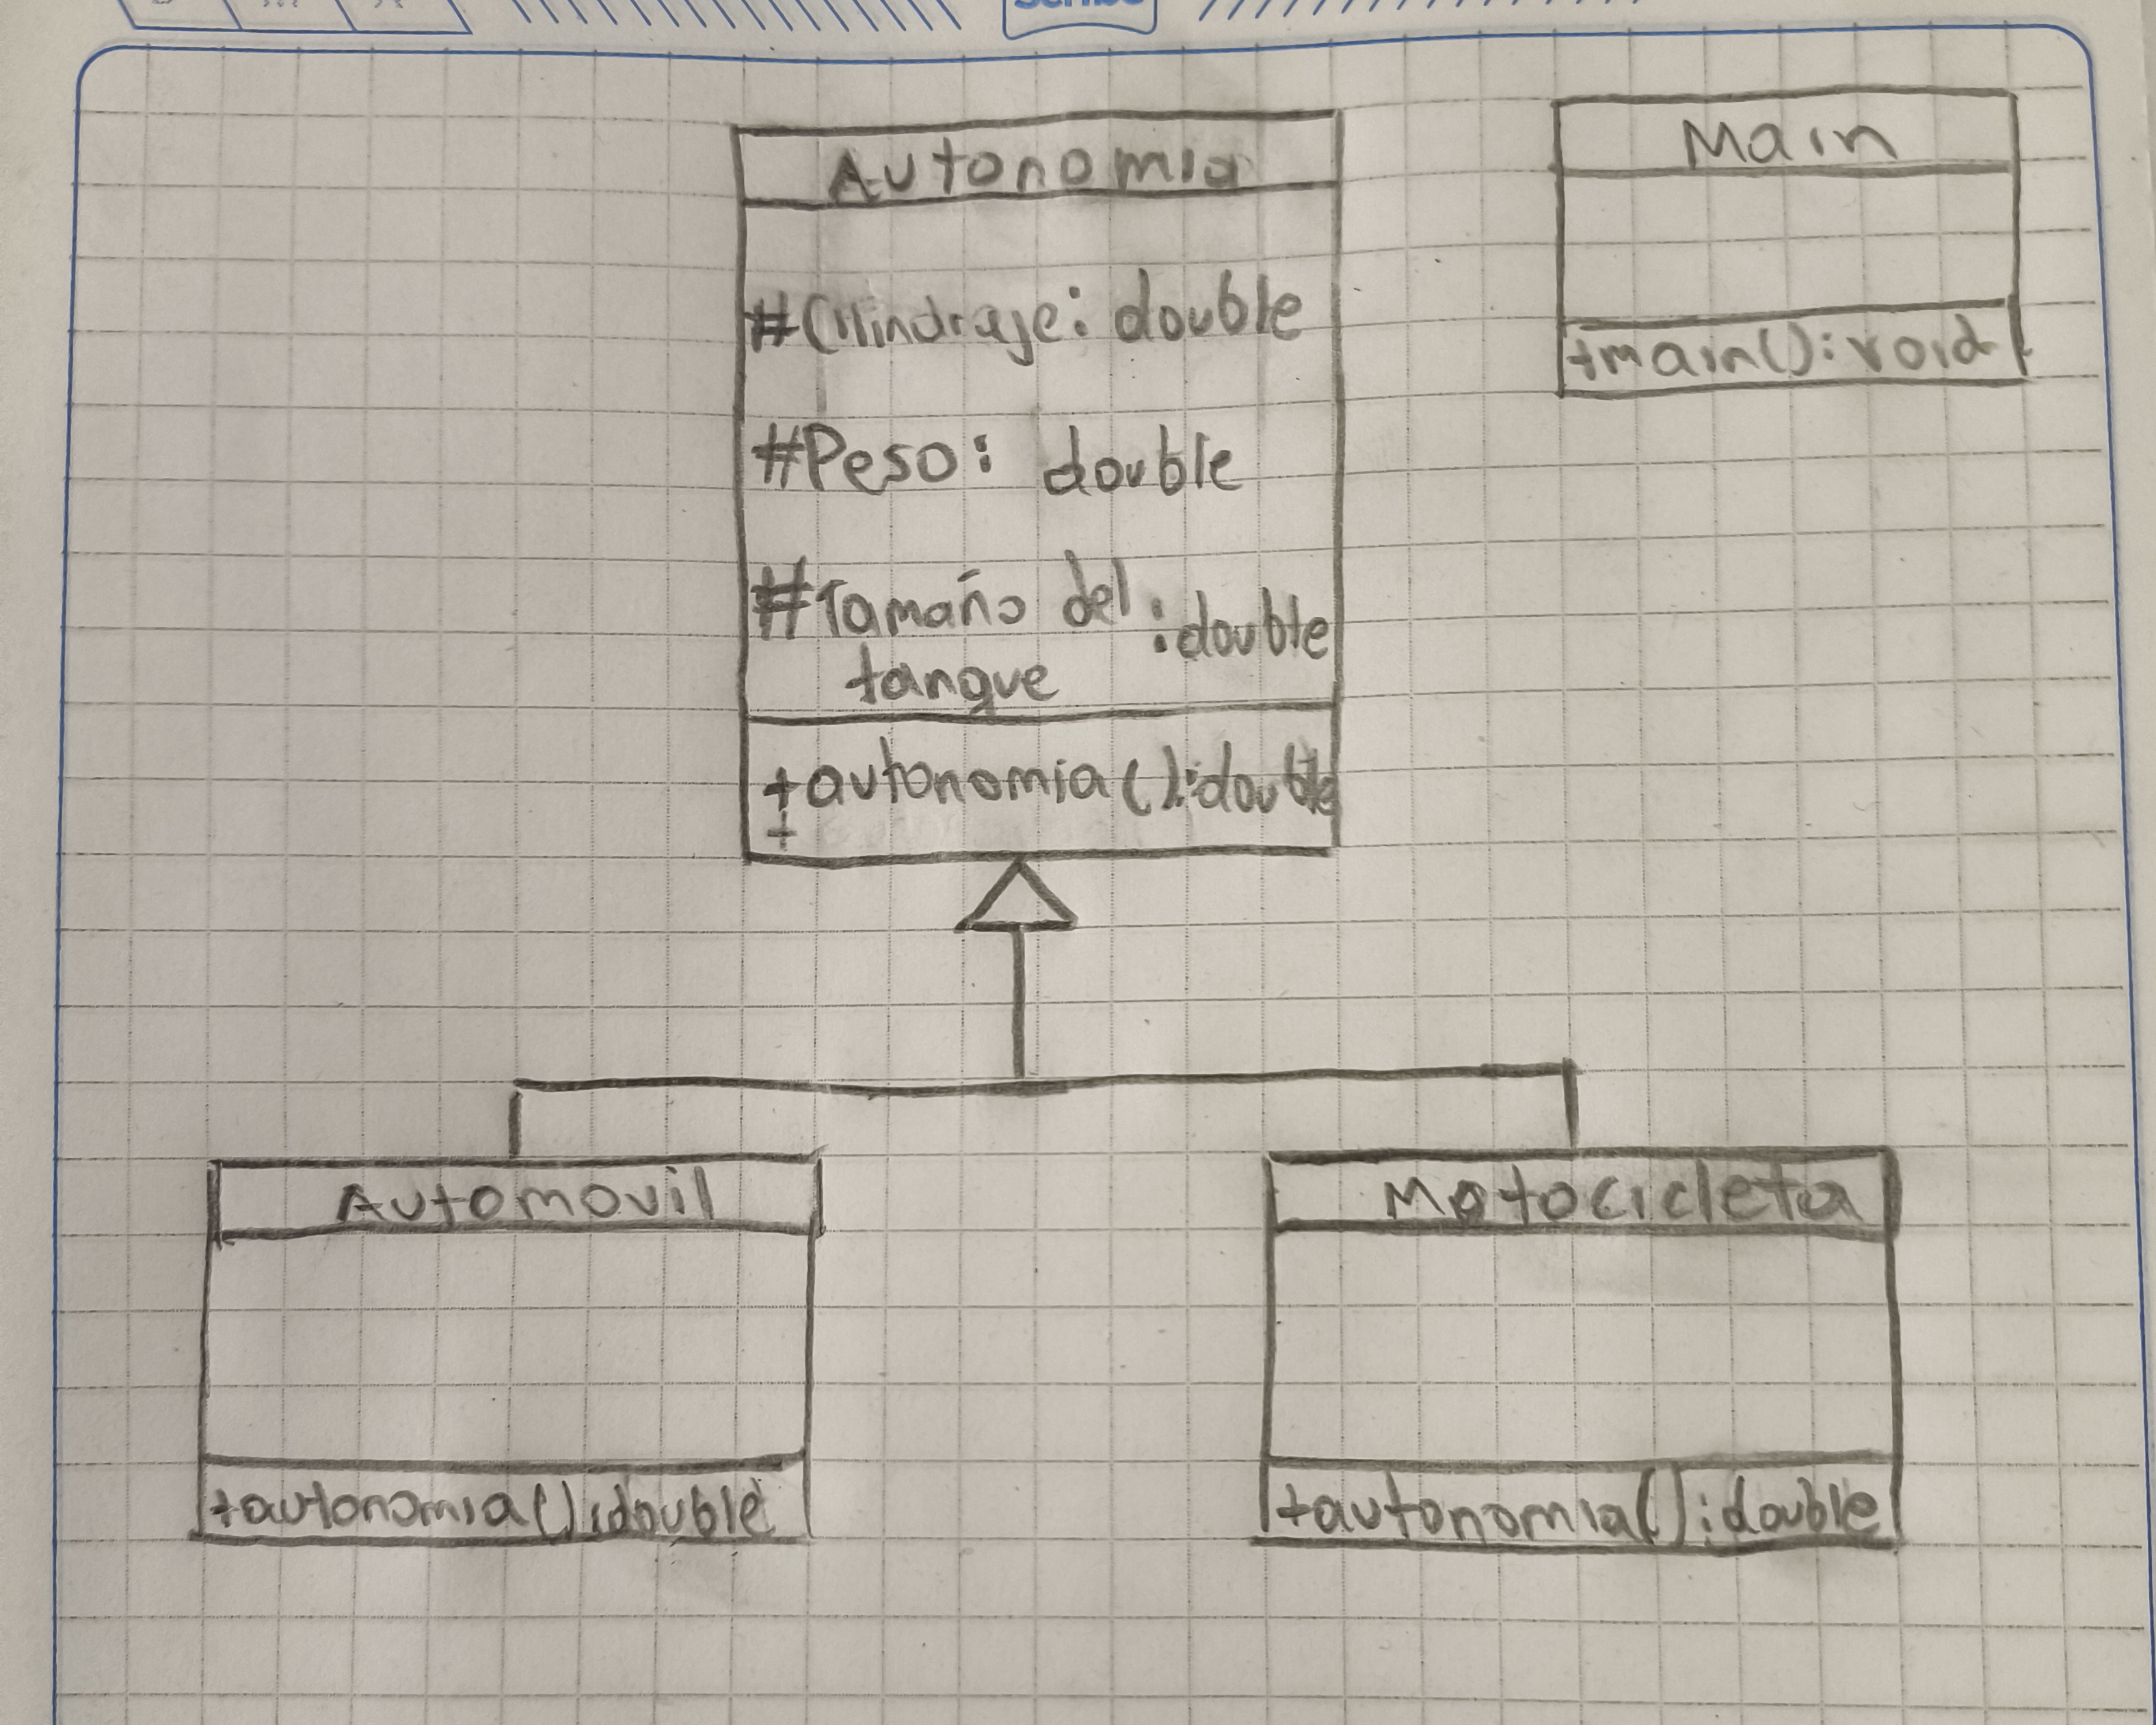 Autonomia
#Cilindraje: double
#Peso: double
#Tamaño del :double
tanque
+autonomia():double
+
Main
+main():void
Automovil
+autonomia():double
Motocicleta
+autonomia():double